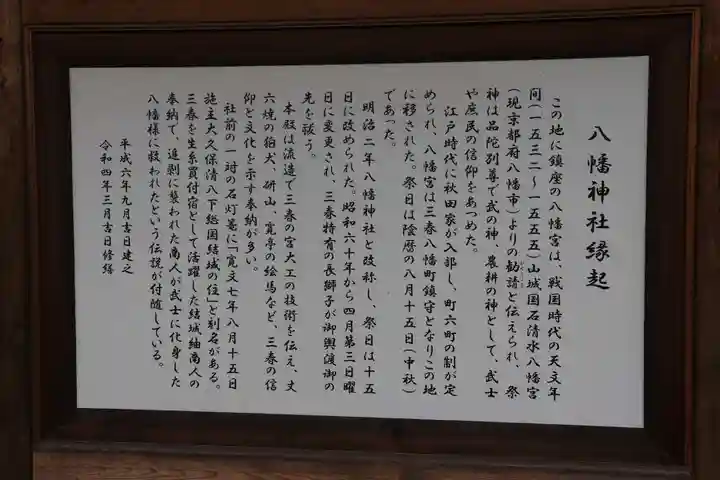 八幡神社縁起
この地に鎮座の八幡宮は、戦国時代の天文年
間(一五三二~一五五五)山城国石清水八幡宮
(現京都府八幡市)よりの勧請と伝えられ、祭
神は品陀別尊で武の神、農耕の神として、武士
や庶民の信仰をあつめた。
江戸時代に秋田家が入部し、町六町の制が定
められ、八幡宮は三春八幡町鎮守となりこの地
に移された。祭日は陰暦の八月十五日(中秋)
であった。
明治二年八幡神社と改称し、祭日は十五
日に改められた。昭和六十年から四月第三日曜
日に変更され、三春特有の長獅子が御輿渡御の
先を祓う。
本殿は流造で三春の宮大工の技術を伝え、丈
六焼の狛犬、研山、寛亭の絵馬など、三春の信
仰と文化を示す奉納が多い。
社前の一対の石灯篭に「寛文七年八月十五日
施主大久保清八下総国結城の住」と刻名がある。
三春を生糸買付宿として活躍した結城紬商人の
奉納で、追剥に襲われた商人が武士に化身した
八幡様に救われたという伝説が付随している。
平成六年九月吉日建之
令和四年三月吉日修繕